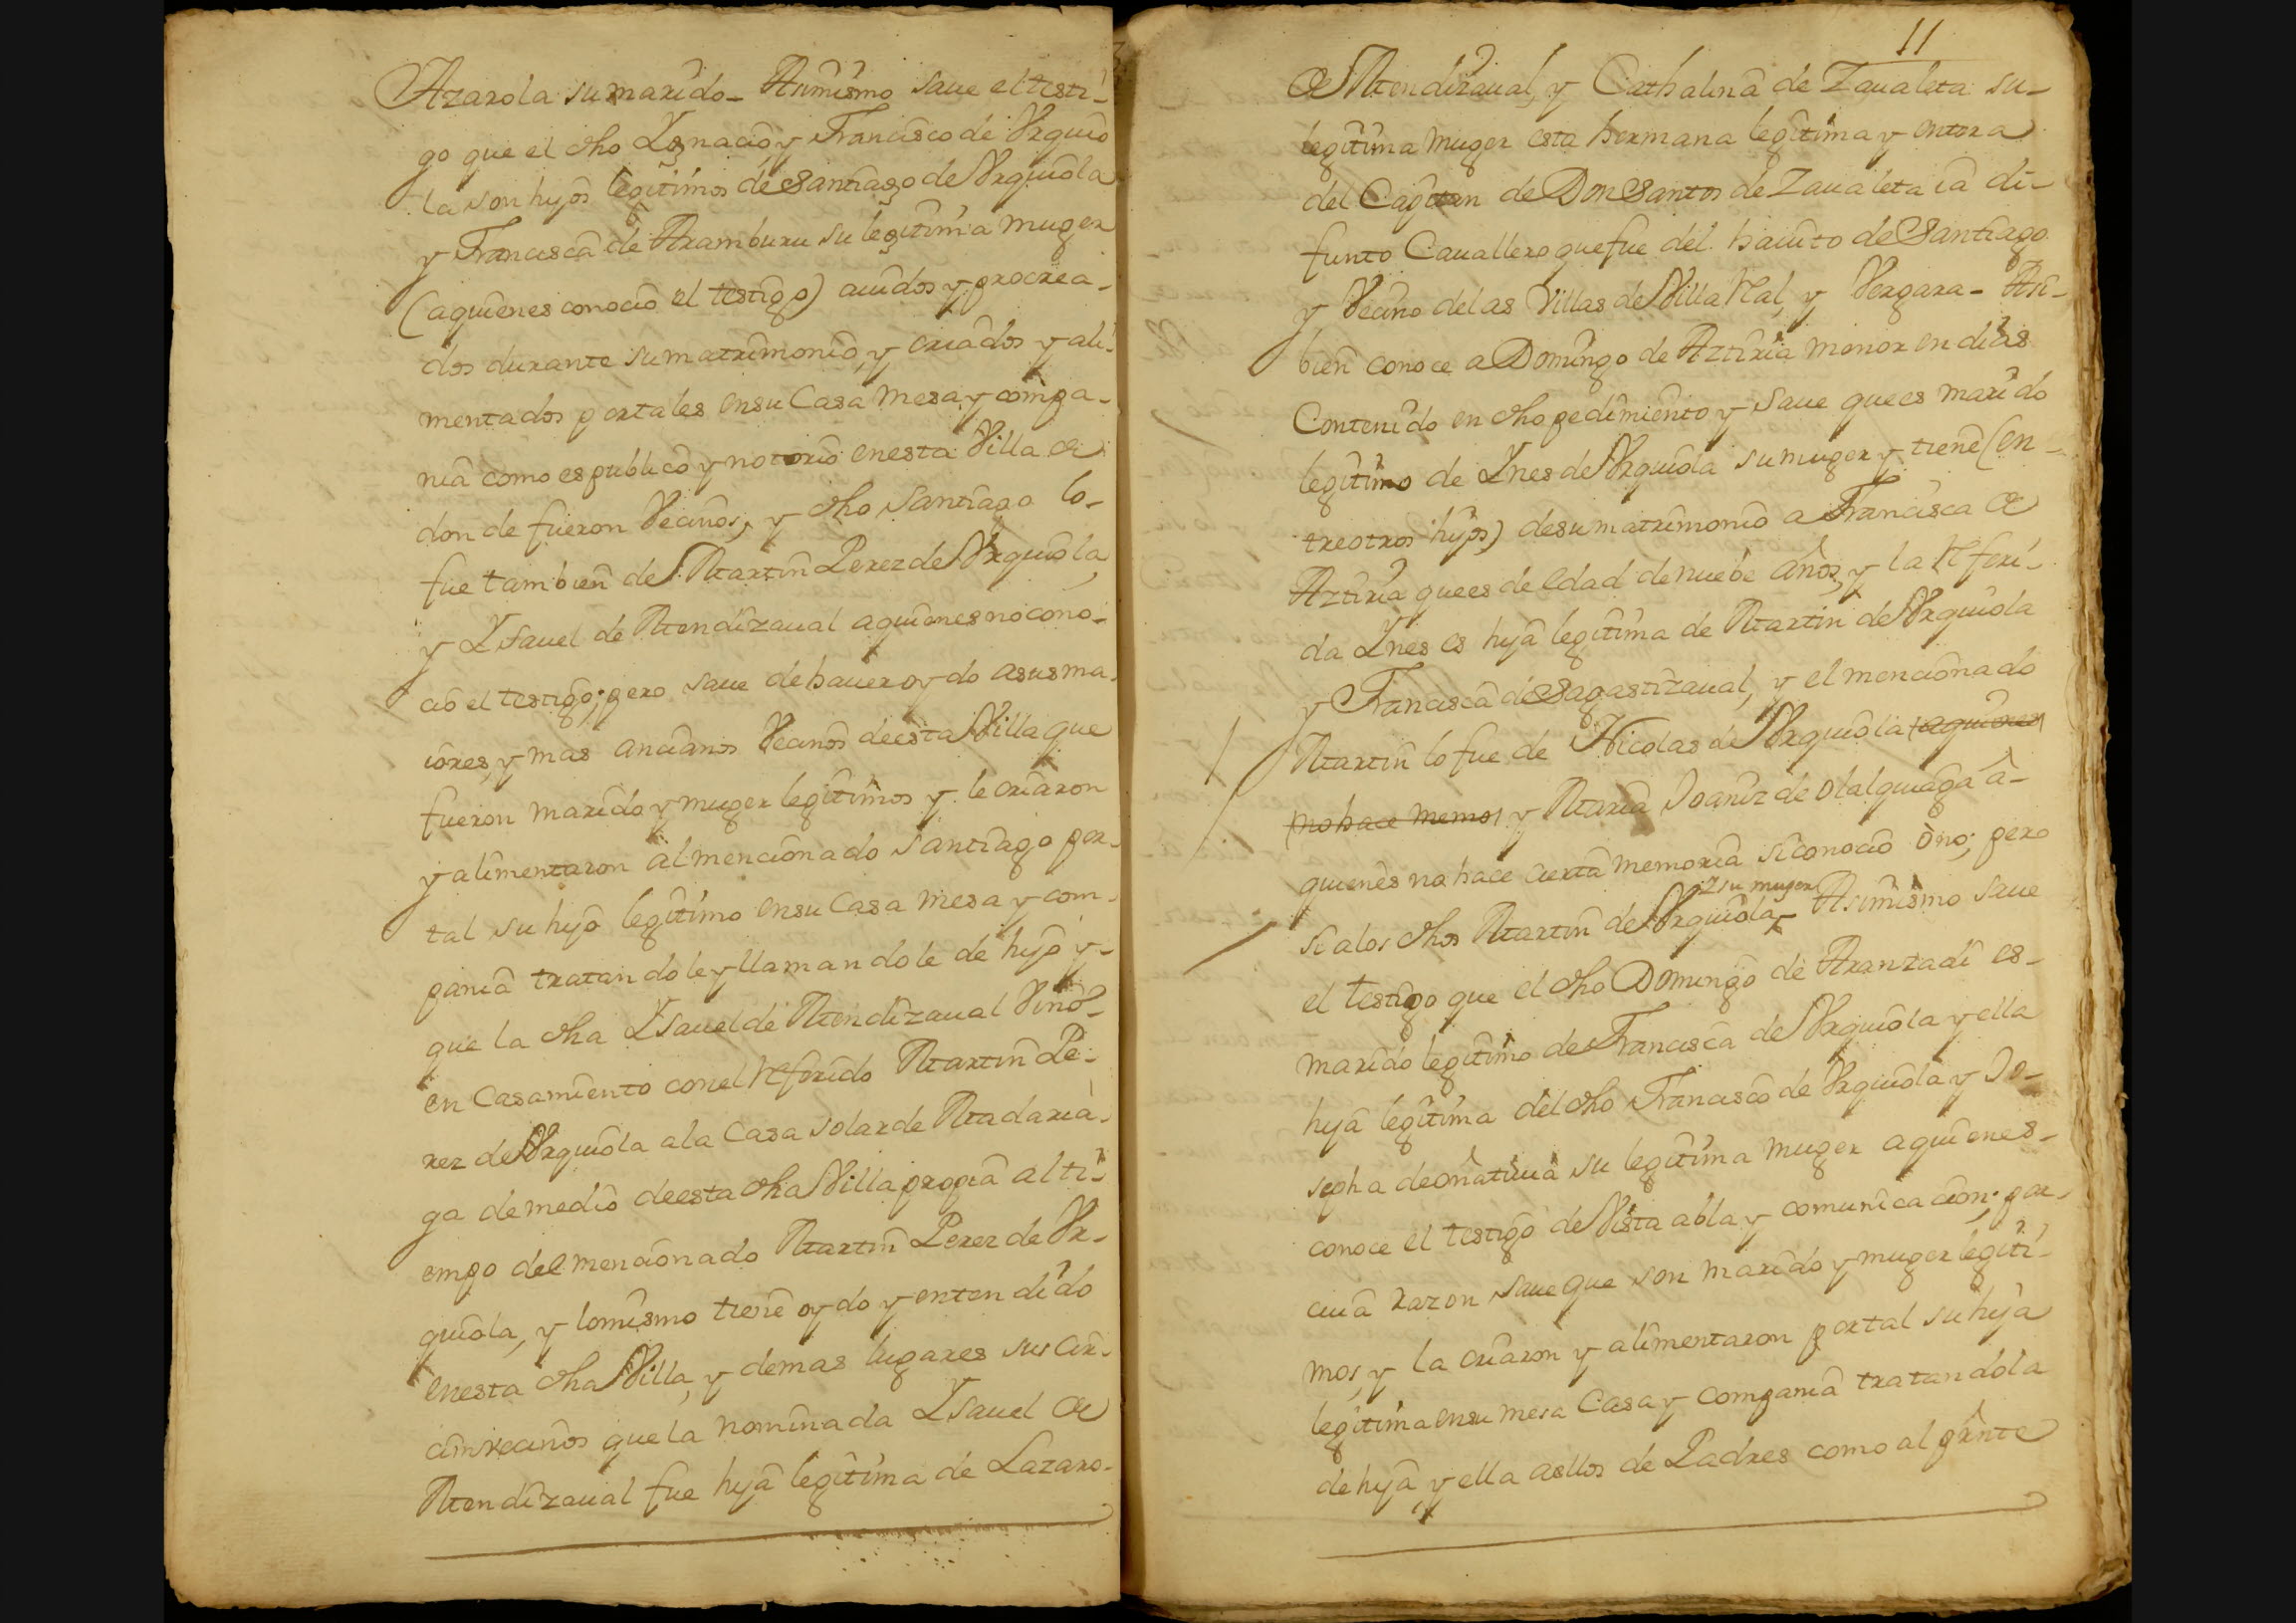 Azarola su marido_ Asimismo saue el testi-
go que el dho Ygnacio y Francisco de Vrquio
la son hijos legitimos de Santiago de Vrquiola
y Francisca de Aramburu su legitima muger
(a quienes conocio el testigo) auidos y procrea-
dos durante su matrimonio, y criados y ali-
mentados por tales en su Casa mesa y compa-
nia como es publico y notorio en esta Villa de
donde fueron Vecinos, y dho Santiago lo-
fue tambien de Martin Perez de Vrquiola,
y Ysauel de Mendizaual a quienes no cono-
cio el testigo; pero saue de hauer oydo a sus ma-
iores, y mas ancianos Vecinos de esta Villa que
fueron marido y muger legitimos y le criaron
y alimentaron al mencionado Santiago por
tal su hijo legitimo en su Casa mesa y com-
pania tratandole y llamandole de hijo y-
que la dha Ysauel de Mendizaual Vino-
en Casamiento con el Referido Martin Pe-
rez de Vrquiola a la Casa solar de Madaria-
ga de medio de esta dha Villa propia al ti-
empo del mencionado Martin Perez de Vr-
quiola, y lo mismo tiene oydo y entendido
en esta dha Villa, y demas lugares sus Cir-
cunvecinos que la nominada Ysauel de
Mendizaual fue hija legitima de Lazaro-
11
de Mendizaual, y Cathalina de Zaualeta su-
legitima muger esta hermana legitima y entera
del Capitan de Don Santos de Zaualeta ia di-
funto Cauallero que fue del hauito de Santiago
y Vecino de las Villas de Villa Ral, y Vergara- Asi-
bien conoce a Domingo de Aztiria menor en dias
Contenido en dho pedimiento y saue que es marido
legitimo de Ynes de Vrquiola su muger y tiene (en-
tre otros hijos) de su matrimonio a Francisca de
Aztiria que es de edad de nuebe años, y la Referi-
da Ynes es hija legitima de Martin de Vrquiola
y Francisca de Sagastizaual, y el mencionado
Martin lo fue de Nicolas de Vrquiola (aquienes
no hace memo) y Maria Joaniz de olalquiaga a-
quienes no hace cierta memoria si conocio o no; pero
y su muger
si a los dhos Martin de Vrquiola- Asimismo saue
el testigo que el dho Domingo de Aranzadi es-
marido legitimo de Francisca de Vrquiola y ella
hija legitima del dho Francisco de Vrquiola y Jo-
sepha de oñatiuia su legitima muger a quienes-
conoce el testigo de Vista abla y comunicacion; por
cuia razon saue que son marido y muger legiti-
mos, y la criaron y alimentaron por tal su hija
legitima en su mesa Casa y compania tratandola
de hija, y ella a ellos de Padres como al prnte